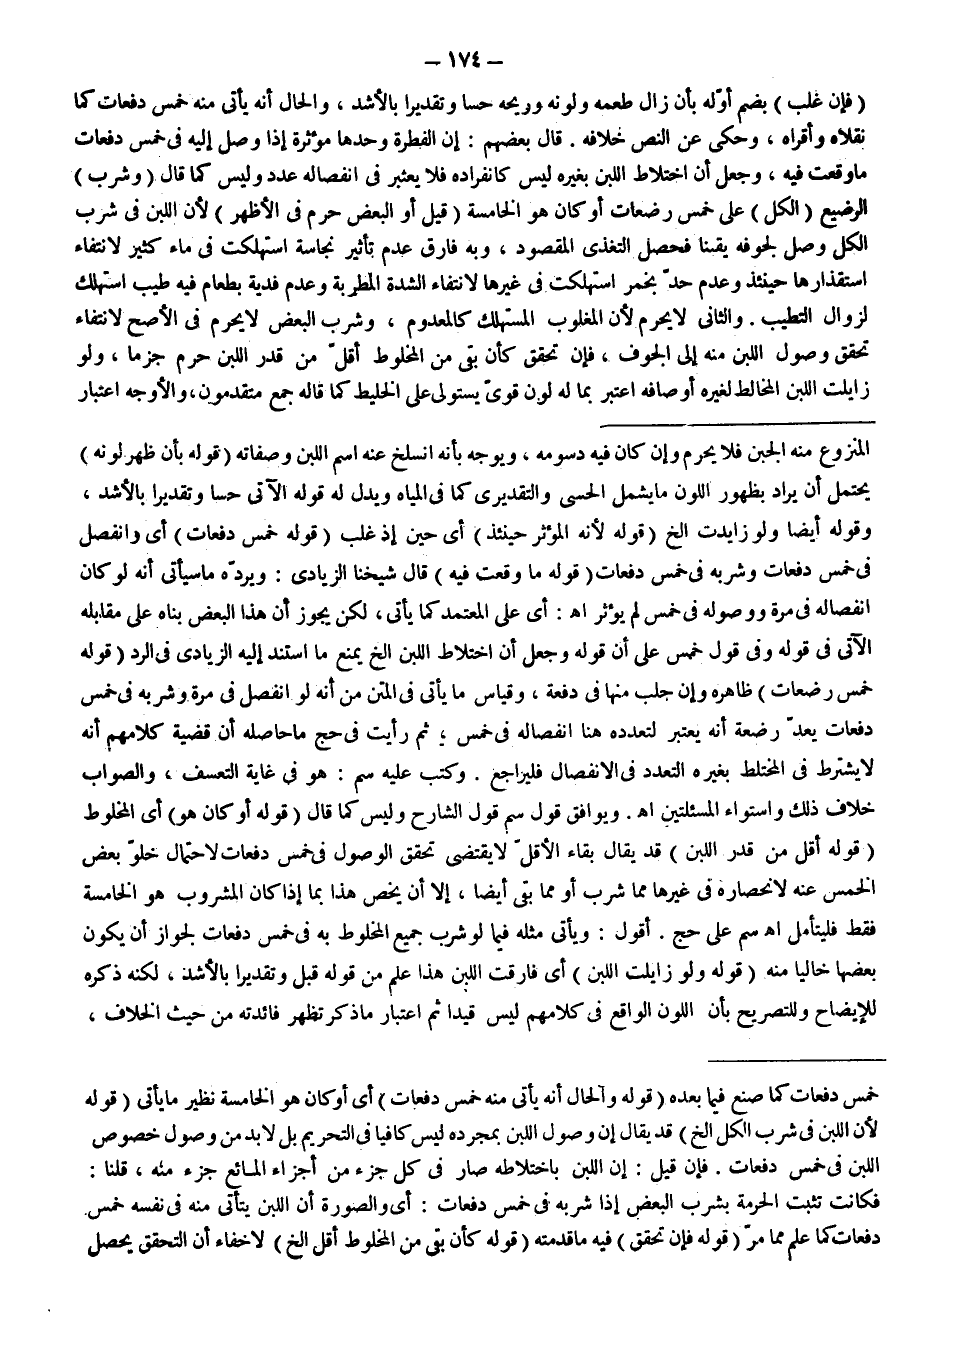 – ١٧٤ –
( فإن غلب ) بضم أوّله بأن زال طعمه ولونه وريحه حسا وتقديرا بالأشد ، والحال أنه يأتى منه خمس دفعات كما
نقلاه وأقراه ، وحكى عن النص خلافه . قال بعضهم : إن الفطرة وحدها مؤثرة إذا وصل إليه فى خمس دفعات
ماوقعت فيه ، وجعل أن اختلاط اللبن بغيره ليس كانفراده فلا يعتبر فى انفصاله عدد وليس كما قال ( وشرب )
الرضيع ( الكل ) على خمس رضعات أو كان هو الخامسة ( قيل أو البعض حرم فى الأظهر ) لأن اللبن فى شرب
الكل وصل لجوفه يقينا فحصل التغذى المقصود ، وبه فارق عدم تأثير نجاسة استهلكت فى ماء كثير لانتفاء
استقذارها حينئذ وعدم حدّ بخمر استهلكت فى غيرها لانتفاء الشدة المطربة وعدم فدية بطعام فيه طيب استهلك
لزوال التطيب . والثانى لايحرم لأن المغلوب المستهلك كالمعدوم ، وشرب البعض لايحرم فى الأصح لانتفاء
تحقق وصول اللبن منه إلى الجوف ، فإن تحقق كأن بقى من المخلوط أقلّ من قدر اللبن حرم جزما ، ولو
زايلت اللبن المخالط لغيره أوصافه اعتبر بما له لون قوىّ يستولى على الخليط كما قاله جمع متقدمون، والأوجه اعتبار
المنزوع منه الجبن فلا يحرم وإن كان فيه دسومه ، ويوجه بأنه انسلخ عنه اسم اللبن وصفاته ( قوله بأن ظهر لونه )
يحتمل أن يراد بظهور اللون مايشمل الحسى والتقديرى كما فى المياه ويدل له قوله الآتى حسا وتقديرا بالأشد ،
وقوله أيضا ولو زايدت الخ ( قوله لأنه المؤثر حينئذ ) أى حين إذ غلب ( قوله خمس دفعات ) أى وانفصل
فى خمس دفعات وشربه فى خمس دفعات ( قوله ما وقعت فيه ) قال شيخنا الزيادى : ويردّه ماسيأتى أنه لو كان
انفصاله فى مرة ووصوله فى خمس لم يؤثر اه : أى على المعتمد كما يأتى ، لكن يجوز أن هذا البعض بناه على مقابله
الآتى فى قوله وفى قول خمس على أن قوله وجعل أن اختلاط اللبن الخ يمنع ما استند إليه الزيادى فى الرد ( قوله
خمس رضعات ) ظاهره وإن حلب منها فى دفعة ، وقياس ما يأتى فى المتن من أنه لو انفصل فى مرة وشربه فى خمس
دفعات يعدّ رضعة أنه يعتبر لتعدده هنا انفصاله فى خمس ؛ ثم رأيت فى حج ماحاصله أن قضية كلامهم أنه
لايشترط فى المختلط بغيره التعدد فى الانفصال فليراجع . وكتب عليه سم : هو فى غاية التعسف ، والصواب
خلاف ذلك واستواء المسئلتين اه . ويوافق قول سم قول الشارح وليس كما قال ( قوله أو كان هو ) أى المخلوط
( قوله أقل من قدر اللبن ) قد يقال بقاء الأقلّ لايقتضى تحقق الوصول فى خمس دفعات لاحتمال خلوّ بعض
الخمس عنه لانحصاره فى غيرها مما شرب أو مما بقى أيضا ، إلا أن يخص هذا بما إذا كان المشروب هو الخامسة
فقط فليتأمل اه سم على حج . أقول : ويأتى مثله فيما لو شرب جميع المخلوط به فى خمس دفعات لجواز أن يكون
بعضها خاليا منه ( قوله ولو زايلت اللبن ) أى فارقت اللبن هذا علم من قوله قبل وتقديرا بالأشد ، لكنه ذكره
للإيضاح وللتصريح بأن اللون الواقع فى كلامهم ليس قيدا ثم اعتبار ماذكر تظهر فائدته من حيث الخلاف ،
خمس دفعات كما صنع فيما بعده ( قوله والحال أنه يأتى منه خمس دفعات ) أى أو كان هو الخامسة نظير مايأتى ( قوله
لأن اللبن فى شرب الكل الخ ) قد يقال إن وصول اللبن بمجرده ليس كافيا فى التحريم بل لابد من وصول خصوص
اللبن فى خمس دفعات . فإن قيل : إن اللبن باختلاطه صار فى كل جزء من أجزاء المائع جزء منه ، قلنا :
فكانت تثبت الحرمة بشرب البعض إذا شربه فى خمس دفعات : أى والصورة أن اللبن يتأتى منه فى نفسه خمس
دفعات كما علم مما مرّ ( قوله فإن تحقق ) فيه ماقدمته ( قوله كأن بقى من المخلوط أقل الخ ) لاخفاء أن التحقق يحصل